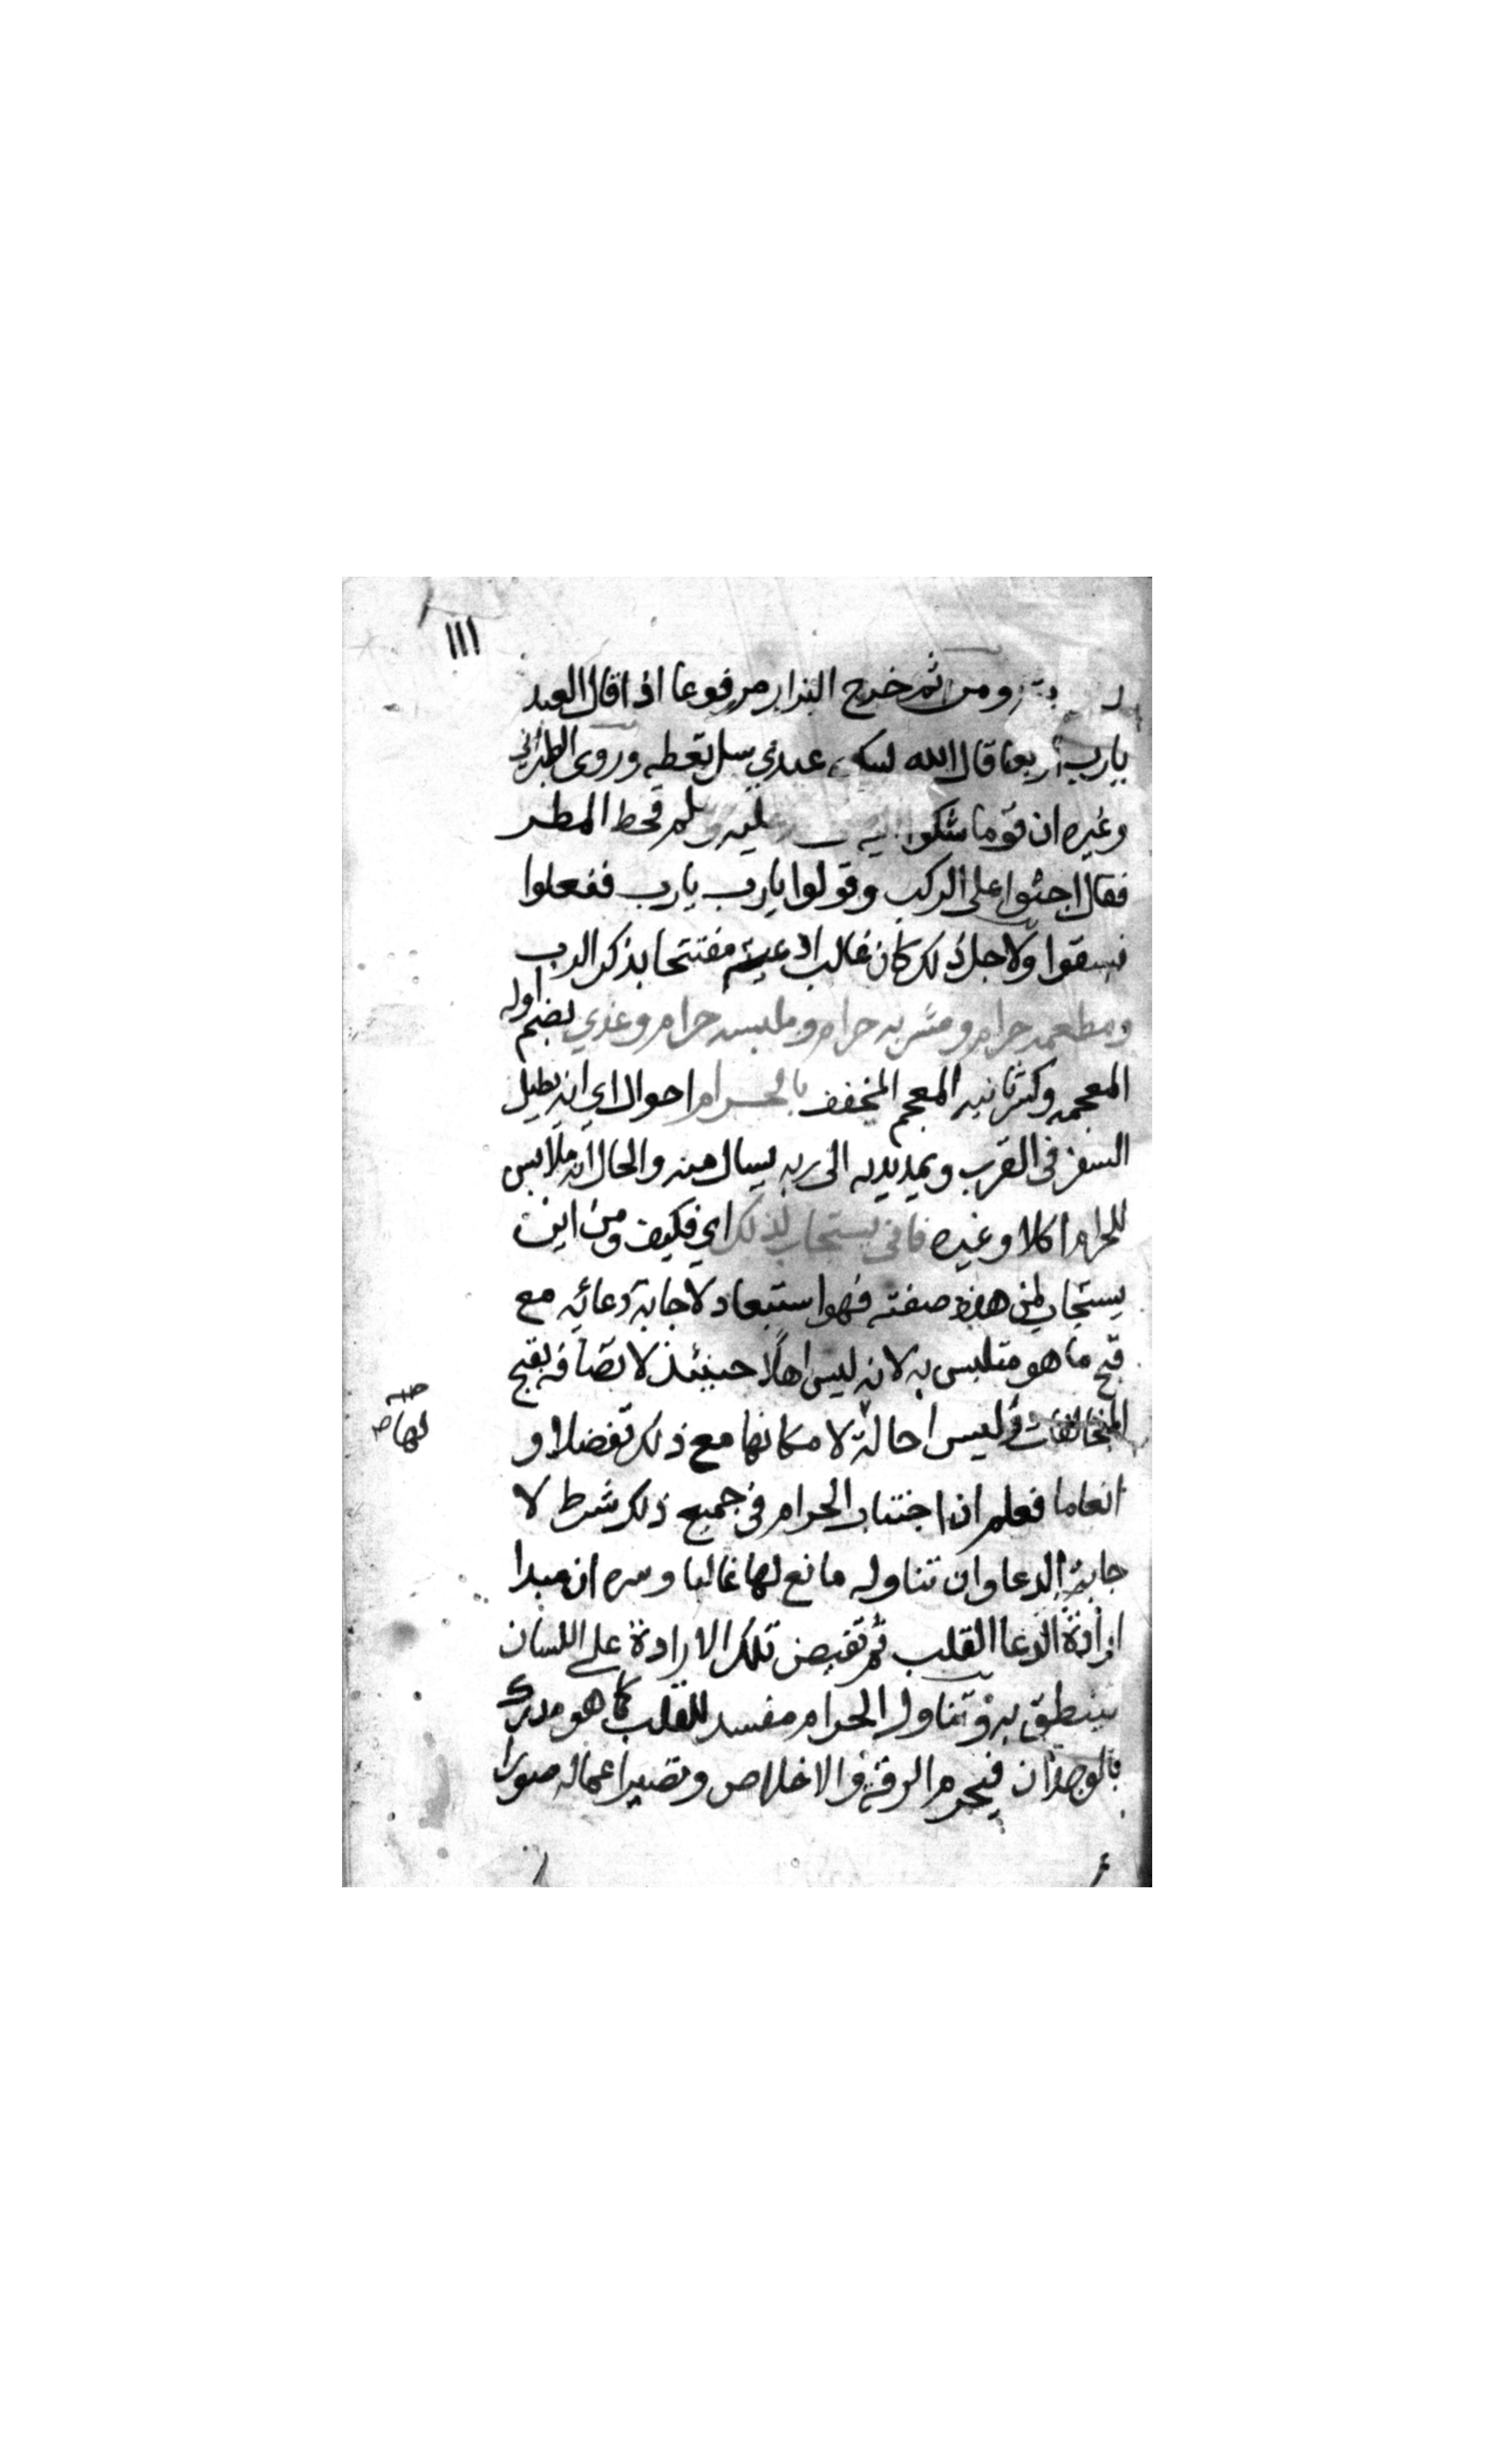 ١١١
ومن ثم خرج البزار مرفوعا اذا قال العبد
يارب اربعا قال الله لبيك عبدي سل تعطه وروى الطبراني
وغيره ان قوما شكوا اليه عليه وسلم قحط المطر
فقال اجثوا على الركب وقولوا يارب يارب ففعلوا
فسقوا ولاجل ذلك كان غالب ادعية مفتتحا بذكر الرب
ومطعمه حرام ومشربه حرام وملبسه حرام وغذي بضم اوله
المعجمه وكسر ثانيه المعجم المخفف بالحرام احوال اي انه يطيل
السفر في القرب ويمد يديه الى ربه يسال منه والحال انه ملابس
للحرام اكلا وغيره فانى يستجاب لذلك اي فكيف ومن اين
يستجاب لمن هذه صفته فهو استبعاد لاجابة دعائه مع
قبح ما هو متلبس به لانه ليس اهلا حينئذ لاتصافه بقبح
المخالفات وليس احالة لامكانها مع ذلك تفضلا و
لها صح
انعاما فعلم ان اجتناب الحرام في جميع ذلك شرط لا
جابة الدعا وان تناوله مانع لها غالبا وسره ان مبدا
ارادة الدعا القلب ثم تفيض تلك الارادة على اللسان
فينطق به وتناول الحرام مفسد للقلب كما هو مدرك
بالوجدان فيحرم الرقة والاخلاص وتصير اعماله صورا